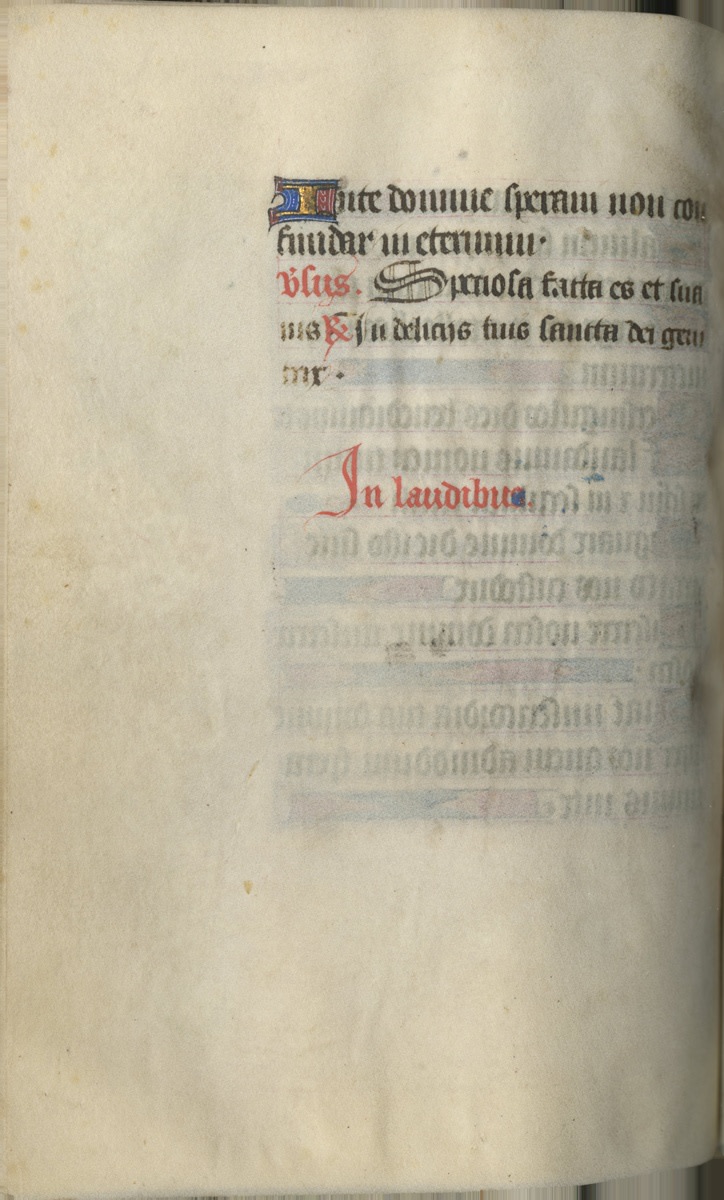 In te domine speraui non con
fundar in eternum.
v̉sus. Speciosa facta es et sua
uis ℟ In delicijs tuis sancta dei geni
trix.
In laudibus.